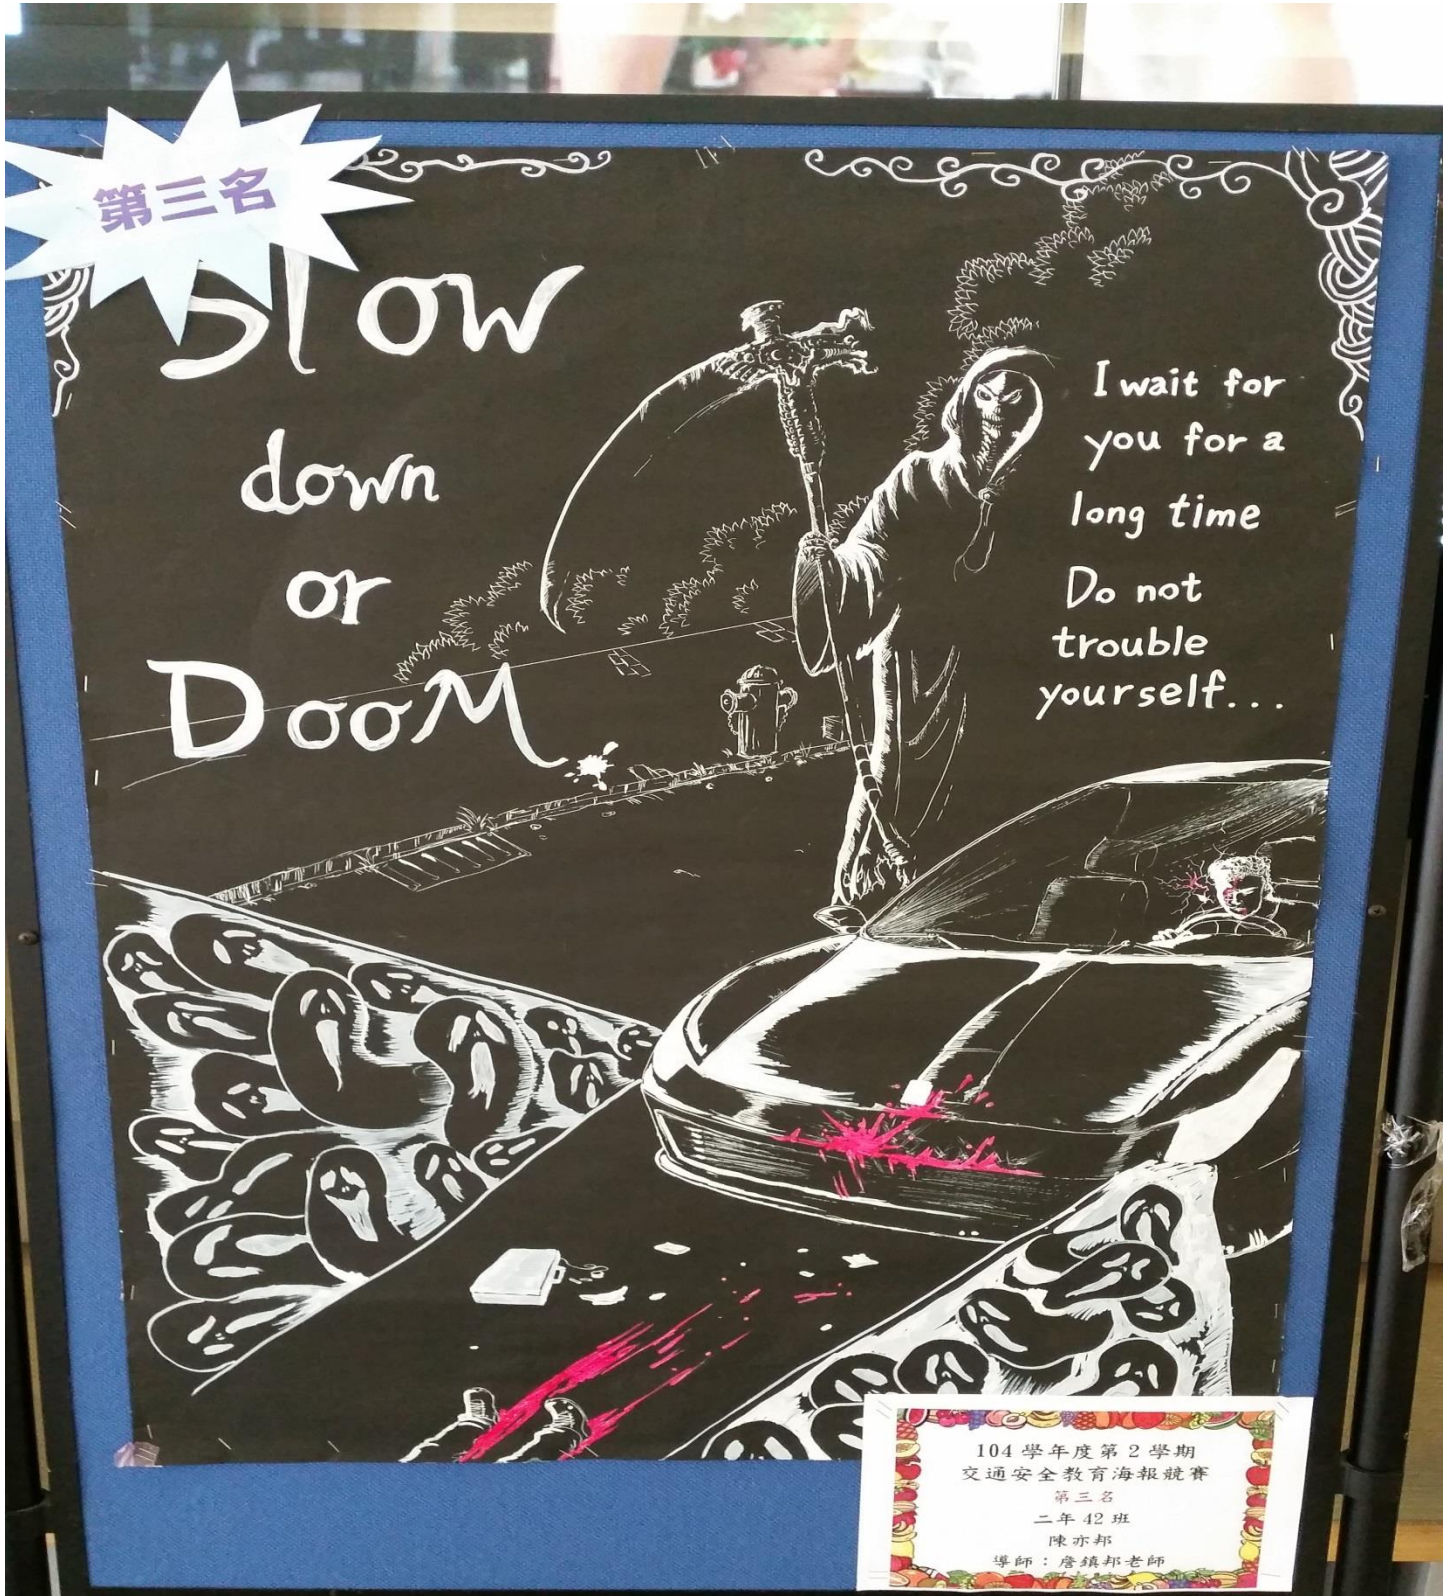 第三名
Slow
down
or
DooM
I wait for
you for a
long time
Do not
trouble
yourself...
104 學年度第 2 學期
交通安全教育海報競賽
第三名
二年 42 班
陳亦邦
導師：詹鎮邦老師